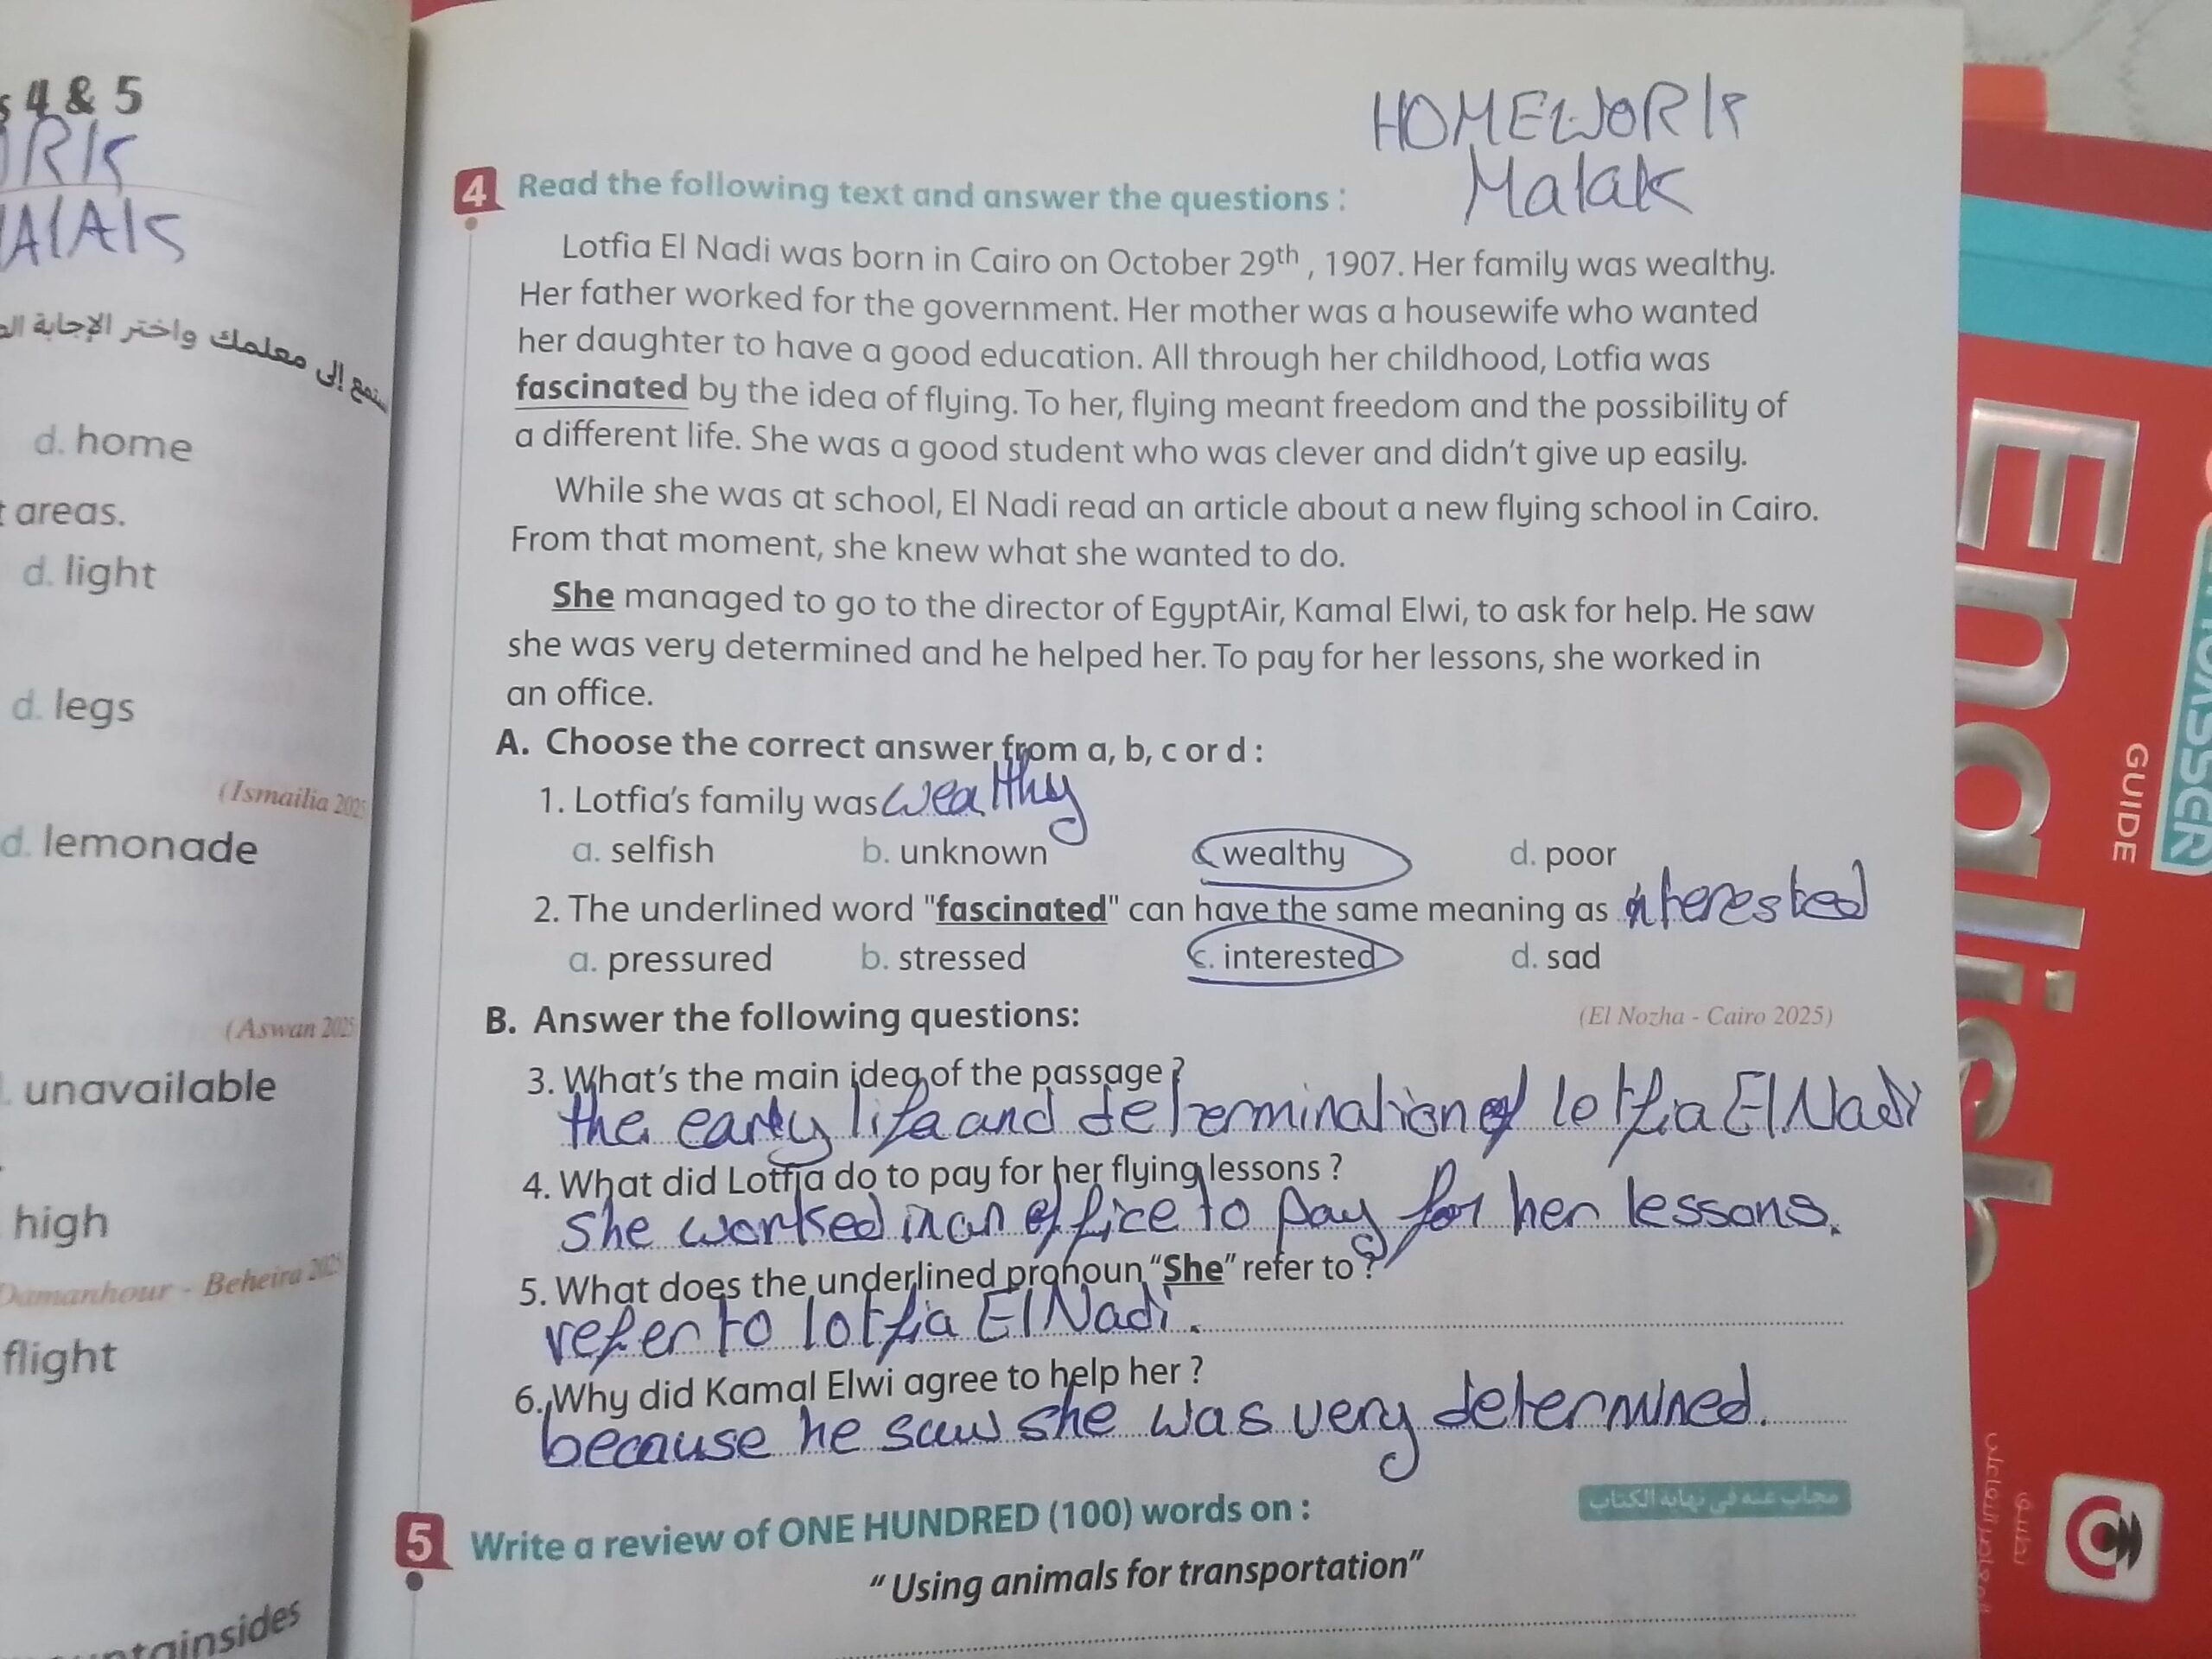 4 & 5
RK
MAlAK
HOMEWORK
Malak
4 Read the following text and answer the questions :
Lotfia El Nadi was born in Cairo on October 29th , 1907. Her family was wealthy.
Her father worked for the government. Her mother was a housewife who wanted
her daughter to have a good education. All through her childhood, Lotfia was
fascinated by the idea of flying. To her, flying meant freedom and the possibility of
a different life. She was a good student who was clever and didn't give up easily.
While she was at school, El Nadi read an article about a new flying school in Cairo.
From that moment, she knew what she wanted to do.
She managed to go to the director of EgyptAir, Kamal Elwi, to ask for help. He saw
she was very determined and he helped her. To pay for her lessons, she worked in
an office.
A. Choose the correct answer from a, b, c or d :
1. Lotfia's family was wealthy
a. selfish b. unknown wealthy d. poor
2. The underlined word "fascinated" can have the same meaning as interested
a. pressured b. stressed c. interested d. sad
B. Answer the following questions: (El Nozha - Cairo 2025)
3. What's the main idea of the passage ?
the early life and determination of lotfia El Nadi
4. What did Lotfia do to pay for her flying lessons ?
she worked in an office to pay for her lessons.
5. What does the underlined pronoun "She" refer to ?
refer to lotfia El Nadi.
6. Why did Kamal Elwi agree to help her ?
because he saw she was very determined.
5 Write a review of ONE HUNDRED (100) words on : مجاب عنه في نهاية الكتاب
"Using animals for transportation"
إلى معلمك واختر الإجابة
d. home
areas.
d. light
d. legs
(Ismailia 2025
d. lemonade
(Aswan 2025
. unavailable
high
Damanhour - Beheira 2025
flight
English
GUIDE